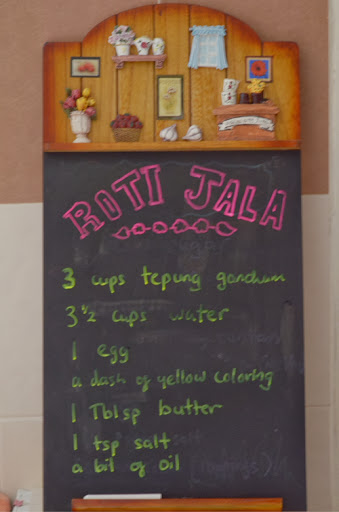 ROTI JALA
3 cups tepung gandum
3 1/2 cups water
1 egg
a dash of yellow coloring
1 Tblsp butter
1 tsp salt
a bit of oil